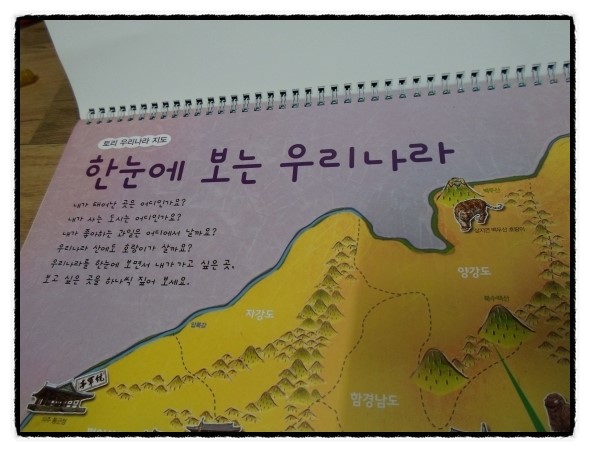 토리 우리나라 지도
한눈에 보는 우리나라
내가 태어난 곳은 어디인가요?
내가 사는 도시는 어디인가요?
내가 좋아하는 과일은 어디에서 날까요?
우리나라 산에도 호랑이가 살까요?
우리나라를 한눈에 보면서 내가 가고 싶은 곳,
보고 싶은 곳을 하나씩 짚어 보세요.
백두산
백두산 호랑이
양강도
자강도
압록강
백수백산
함경남도